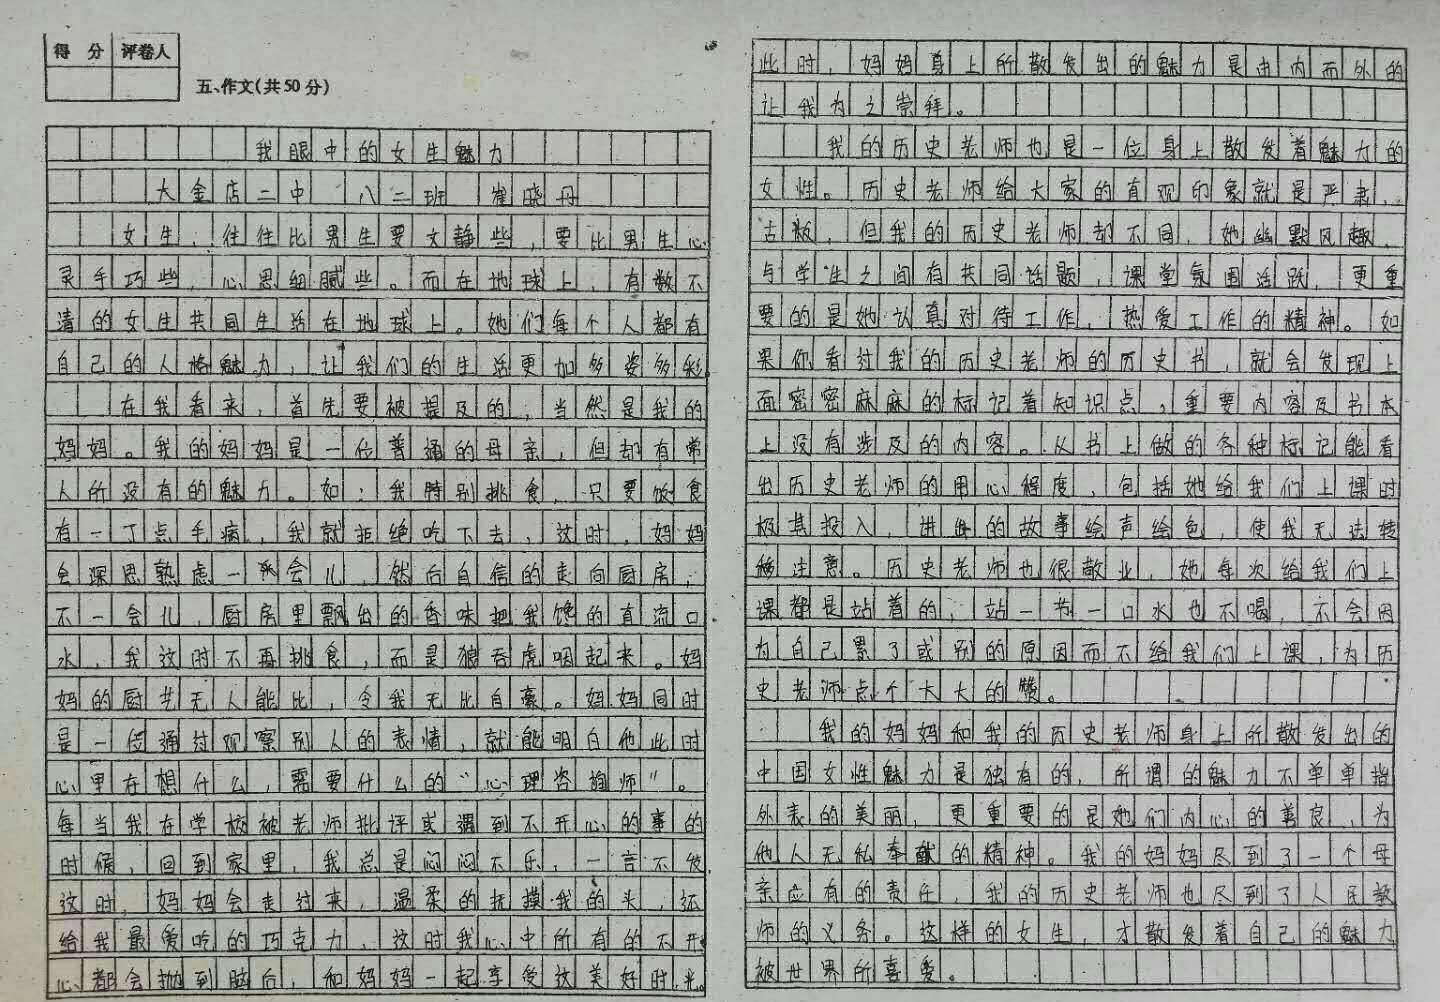 得 分 评卷人
五、作文(共50分)
我眼中的女生魅力
大金店二中 八三班 崔晓丹
女生,往往比男生要文静些,要比男生心
灵手巧些,心思细腻些。而在地球上,有数不
清的女生共同生活在地球上。她们每个人都有
自己的人格魅力,让我们的生活更加多姿多彩。
在我看来,首先要被提及的,当然是我的
妈妈。我的妈妈是一位普通的母亲,但却有常
人所没有的魅力。如:我特别挑食,只要饭食
有一丁点手病,我就拒绝吃下去,这时,妈妈
会深思熟虑一会儿,然后自信的走向厨房,
不一会儿,厨房里飘出的香味把我馋的直流口
水,我这时不再挑食,而是狼吞虎咽起来。妈
妈的厨艺无人能比,令我无比自豪。妈妈同时
是一位通过观察别人的表情,就能明白他此时
心里在想什么,需要什么的“心理咨询师”。
每当我在学校被老师批评或遇到不开心的事的
时候,回到家里,我总是闷闷不乐,一言不发
这时,妈妈会走过来,温柔的抚摸我的头,还
给我最爱吃的巧克力,这时我心中所有的不开
心都会抛到脑后,和妈妈一起享受这美好时光。
此时,妈妈身上所散发出的魅力是由内而外的
让我为之崇拜。
我的历史老师也是一位身上散发着魅力的
女性。历史老师给大家的直观印象就是严肃,
古板,但我的历史老师却不同,她幽默风趣,
与学生之间有共同话题,课堂氛围活跃,更重
要的是她认真对待工作,热爱工作的精神。如
果你看过我的历史老师的历史书,就会发现上
面密密麻麻的标记着知识点,重要内容及书本
上没有涉及的内容。从书上做的各种标记能看
出历史老师的用心程度,包括她给我们上课时
极其投入,讲的故事绘声绘色,使我无法转
移注意。历史老师也很敬业,她每次给我们上
课都是站着的,站一节一口水也不喝,不会因
为自己累了或别的原因而不给我们上课,为历
史老师点个大大的赞。
我的妈妈和我的历史老师身上所散发出的
中国女性魅力是独有的,所谓的魅力不单单指
外表的美丽,更重要的是她们内心的善良,为
他人无私奉献的精神。我的妈妈尽到了一个母
亲应有的责任,我的历史老师也尽到了人民教
师的义务。这样的女生,才散发着自己的魅力
被世界所喜爱。